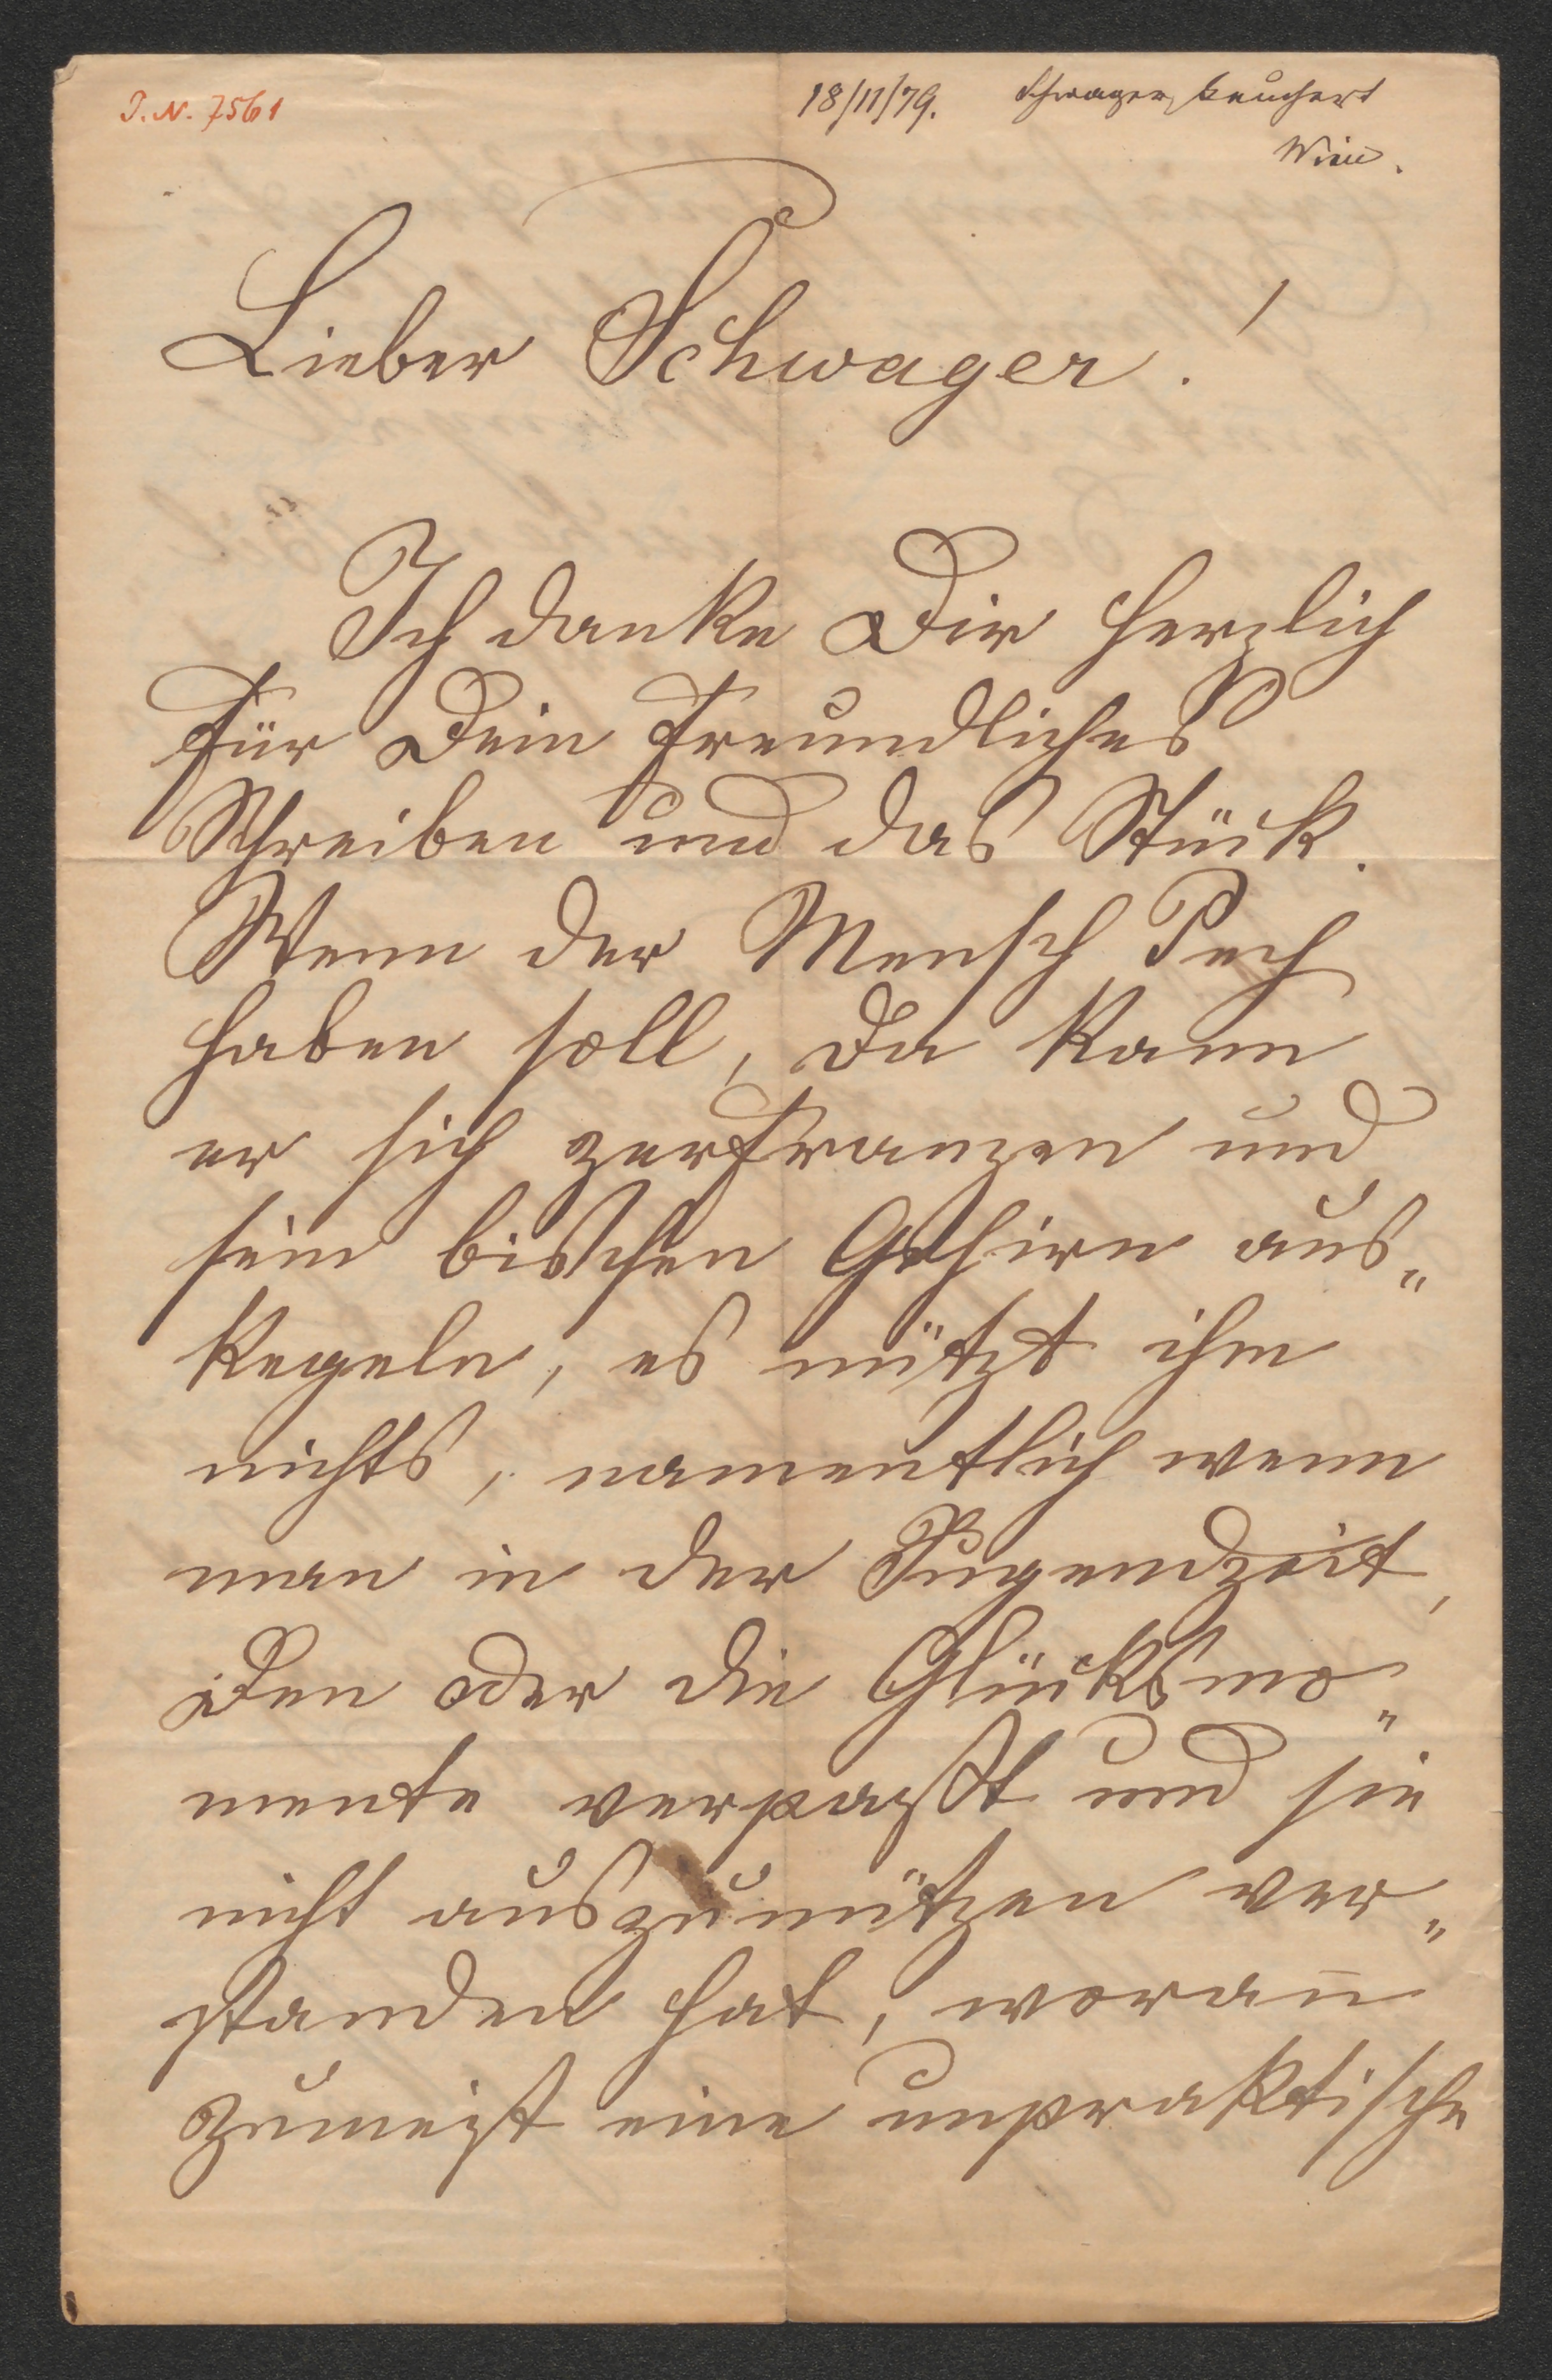 I. N. 7561
18/11/79. Schwager Leuchert
Wien.
Lieber Schwager!
Ich danke Dir herzlich
für Dein freundliches
Schreiben und das Stück.
Wenn der Mensch Pech
haben soll, da kann
er sich zerfranzen und
sein bisschen Gehirn aus„
kegeln, es nützt ihm
nichts, namentlich wenn
man in der Jugendzeit,
den oder die Glücksmo„
mente verpaßt und sie
nicht auszunützen ver„
standen hat, woran
zumeist eine unpraktische